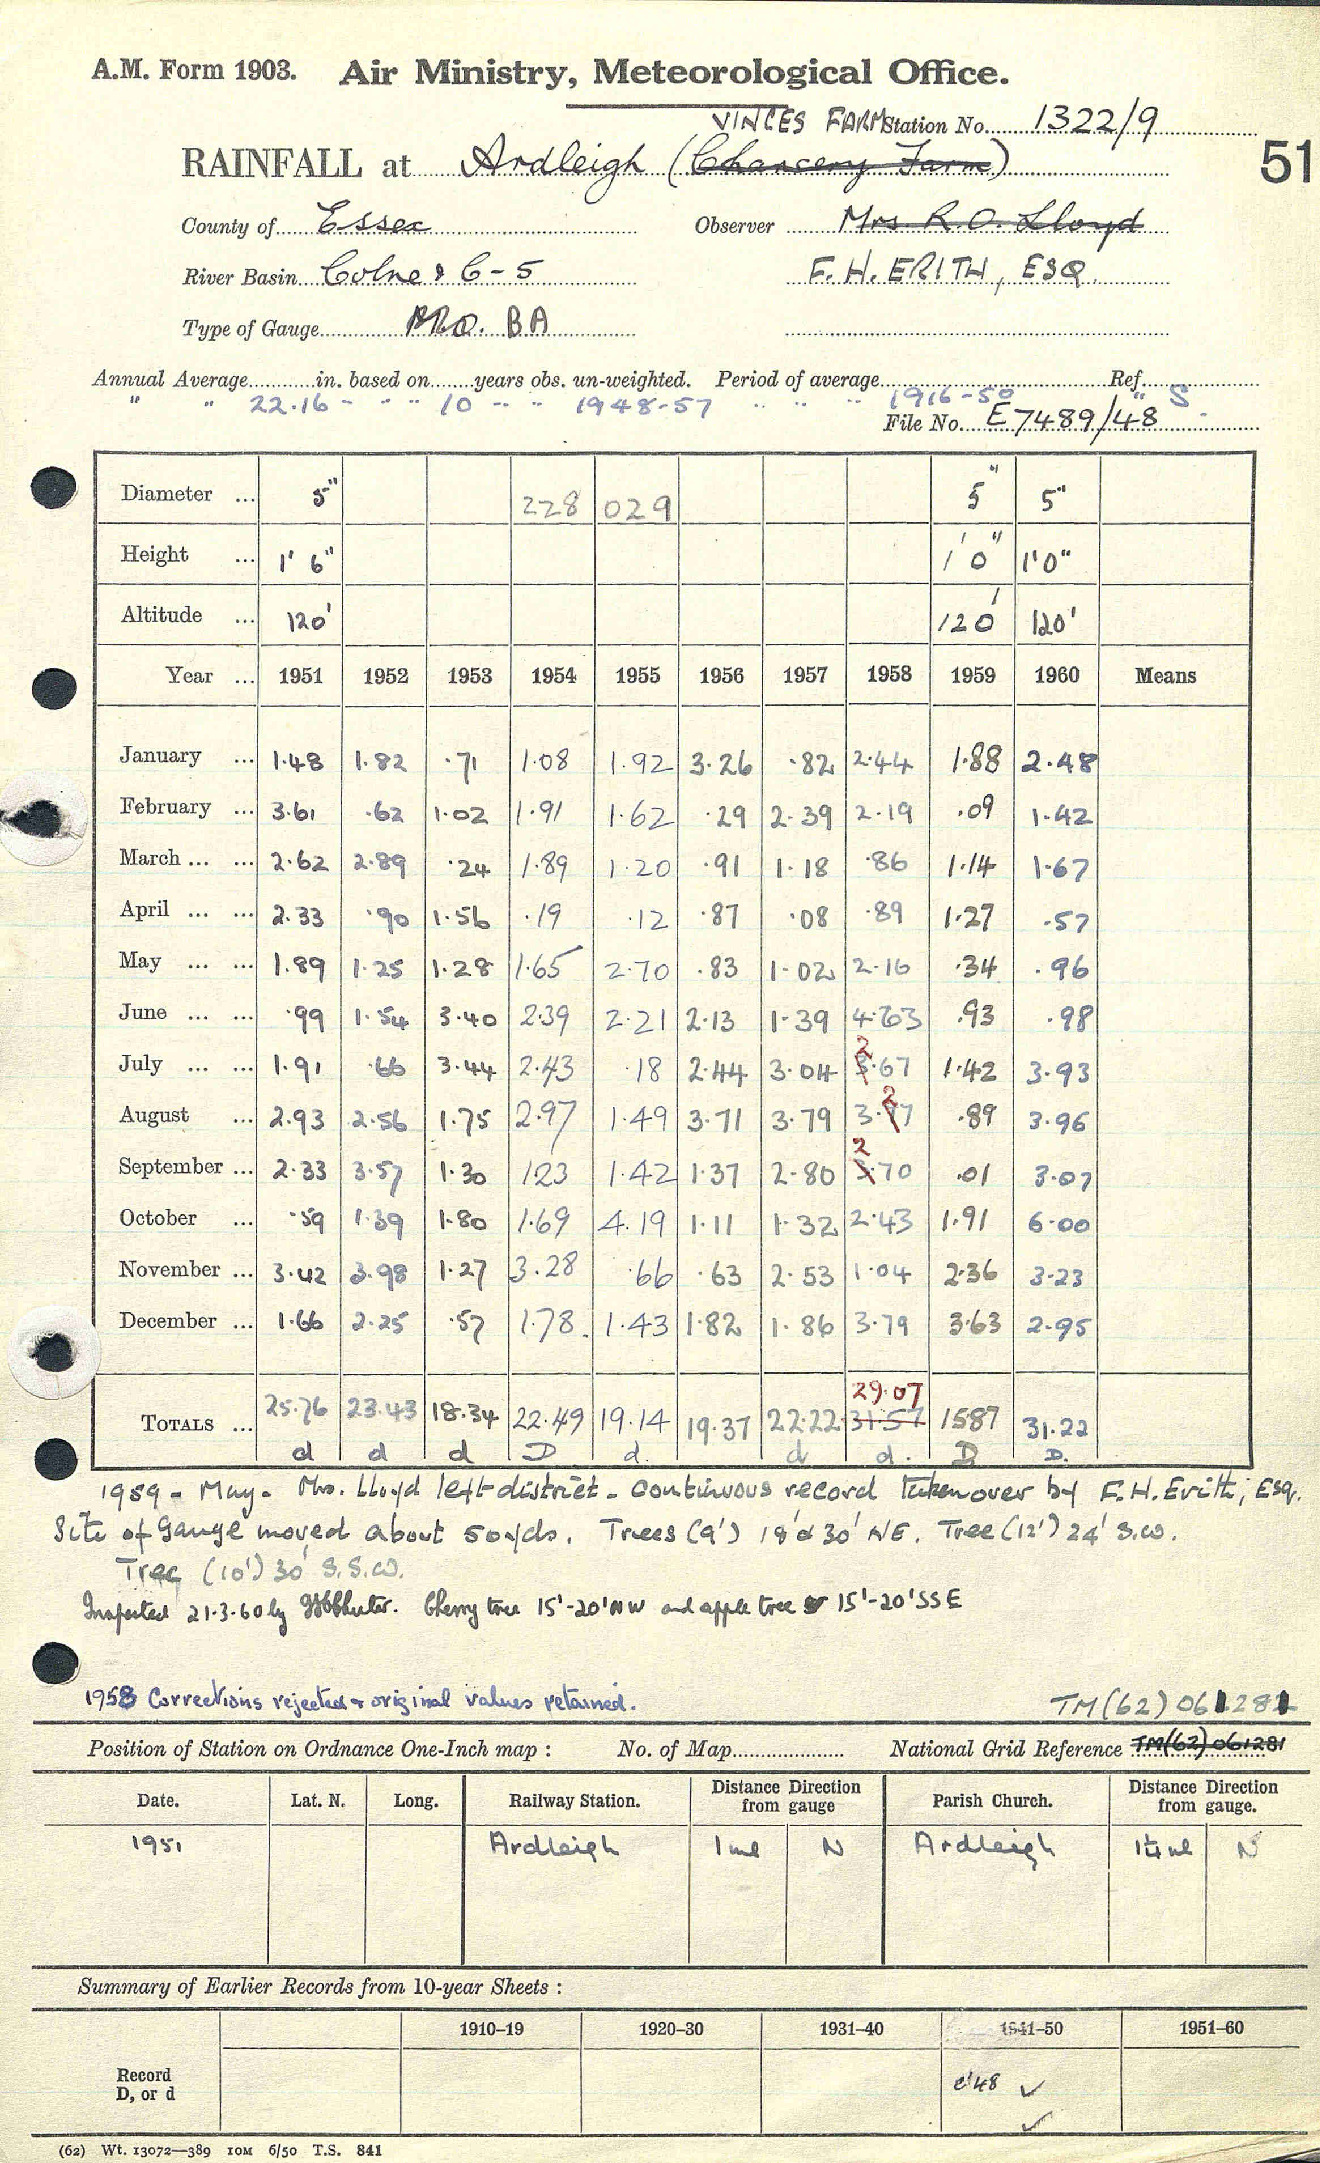 A.M. Form 1903. Air Ministry, Meteorological Office.
VINCES FARM Station No. 1322/9
RAINFALL at Ardleigh (Chancery Farm)
51
County of Essex Observer Mrs. R.O. Lloyd
River Basin Colne & C-5 F. H. ERITH, ESQ.
Type of Gauge BA
Annual Average in. based on years obs. un-weighted. Period of average Ref.
" " 22.16 - - " " 10 - - " " 1948-57 " " " " 1916-50 " S.
File No. E7489/48
Diameter ... 5" 228 029 5" 5"
Height ... 1' 6" 1' 0" 1'0"
Altitude ... 120' 120' 120'
Year ... 1951 1952 1953 1954 1955 1956 1957 1958 1959 1960 Means
January ... 1.48 1.82 .71 1.08 1.92 3.26 .82 2.44 1.88 2.48
February ... 3.61 .62 1.02 1.91 1.62 .29 2.39 2.19 .09 1.42
March ... ... 2.62 2.89 .24 1.89 1.20 .91 1.18 .86 1.14 1.67
April ... ... 2.33 .90 1.56 .19 .12 .87 .08 .89 1.27 .57
May ... ... 1.89 1.25 1.28 1.65 2.70 .83 1.02 2.16 .34 .96
June ... ... .99 1.54 3.40 2.39 2.21 2.13 1.39 4.63 .93 .98
2
July ... ... 1.91 .66 3.44 2.43 .18 2.44 3.04 3.67 1.42 3.93
2
August ... 2.93 2.56 1.75 2.97 1.49 3.71 3.79 3.97 .89 3.96
2
September ... 2.33 3.57 1.30 1.23 1.42 1.37 2.80 3.70 .01 3.07
October ... .59 1.39 1.80 1.69 4.19 1.11 1.32 2.43 1.91 6.00
November ... 3.42 3.98 1.27 3.28 .66 .63 2.53 1.04 2.36 3.23
December ... 1.66 2.25 .57 1.78 1.43 1.82 1.86 3.79 3.63 2.95
29.07
TOTALS ... 25.76 23.43 18.34 22.49 19.14 19.37 22.22 31.57 1587 31.22
d d d D d. d d. D D.
1959 - May - Mrs. Lloyd left district - continuous record taken over by F.H. Erith, Esq.
Site of gauge moved about 50 yds. Trees (9') 18' & 30' NE. Tree (12') 24' S.W.
Tree (10') 30' S.S.W.
Inspected 21-3-60 by Cherry tree 15'-20' NW and apple tree 15'-20' SSE
1958 Corrections rejected & original values retained.
TM(62) 061281
Position of Station on Ordnance One-Inch map : No. of Map National Grid Reference TM(62)061281
Date. Lat. N. Long. Railway Station. Distance Direction from gauge Parish Church. Distance Direction from gauge.
1951 Ardleigh 1 ml N Ardleigh 1¼ ml N
Summary of Earlier Records from 10-year Sheets :
1910-19 1920-30 1931-40 1941-50 1951-60
Record D, or d d'48 ✓
✓
(62) Wt. 13072—389 10M 6/50 T.S. 841